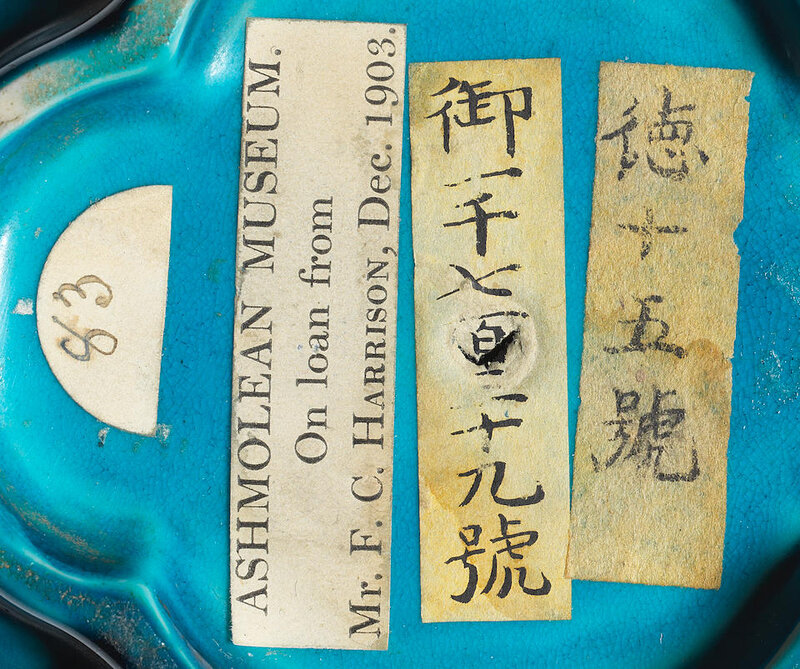 83
ASHMOLEAN MUSEUM.
On loan from
Mr. F. C. HARRISON, Dec. 1903.
御一千七百一十九號
德十五號